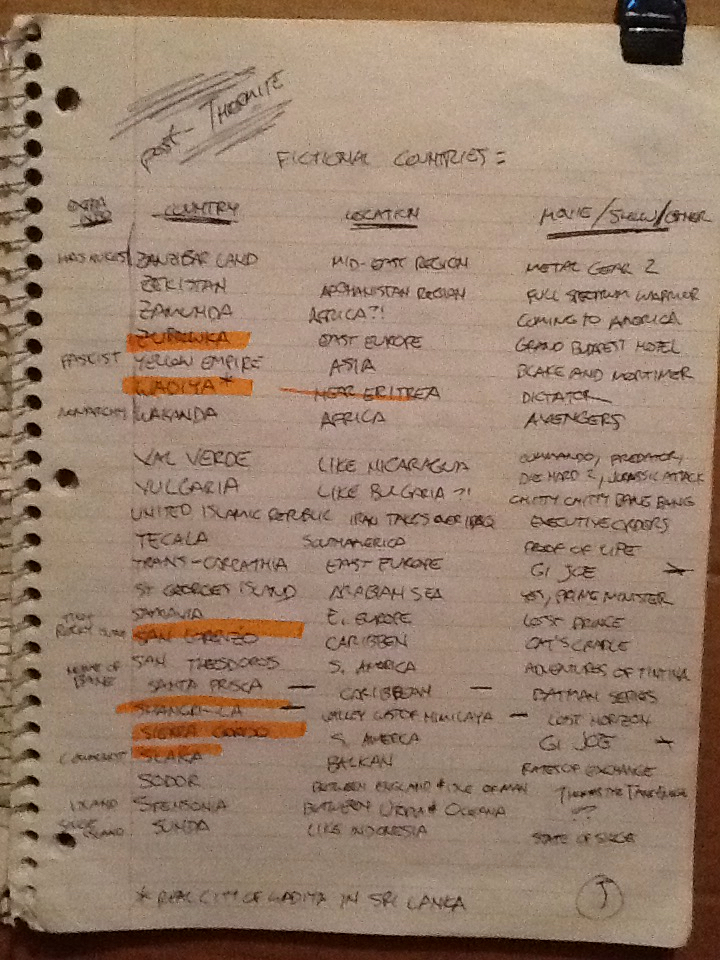 POST-THERMITE
FICTIONAL COUNTRIES:
EXTRA INFO COUNTRY LOCATION MOVIE/SHOW/OTHER
HAS NUKES ZANZIBAR LAND MID-EAST REGION METAL GEAR 2
ZEKISTAN AFGHANISTAN REGION FULL SPECTRUM WARRIOR
ZAMUNDA AFRICA?! COMING TO AMERICA
ZUBROWKA EAST EUROPE GRAND BUDAPEST HOTEL
FASCIST YELLOW EMPIRE ASIA BLAKE AND MORTIMER
WADIYA* NEAR ERITREA DICTATOR
MONARCHY WAKANDA AFRICA AVENGERS
VAL VERDE LIKE NICARAGUA COMMANDO, PREDATOR,
DIE HARD 2, JURASSIC ATTACK
VULGARIA LIKE BULGARIA ?! CHITTY CHITTY BANG BANG
UNITED ISLAMIC REPUBLIC IRAN TAKES OVER IRAQ EXECUTIVE ORDERS
TECALA SOUTH AMERICA PROOF OF LIFE
TRANS-CARPATHIA EAST EUROPE GI JOE
ST GEORGES ISLAND ARABIAN SEA YES, PRIME MINISTER
SAMAVIA E. EUROPE LOST PRINCE
TINY ROCKY SAN LORENZO CARIBBEN CAT'S CRADLE
SAN THEODOROS S. AMERICA ADVENTURES OF TINTIN
HOME OF BANE SANTA PRISCA — CARIBBEAN — BATMAN SERIES
SHANGRI-LA — VALLEY WEST OF HIMILAYA — LOST HORIZON
SIERRA GORDO S. AMERICA GI JOE
COMMUNIST SLAKA BALKAN RATES OF EXCHANGE
SODOR BETWEEN ENGLAND & ISLE OF MAN THOMAS THE TANK ENGINE
ISLAND SPENSONIA BETWEEN UTOPIA & OCEANA ??
ISLAND SUNDA LIKE INDONESIA STATE OF SIEGE
* REAL CITY OF WADIYA IN SRI LANKA